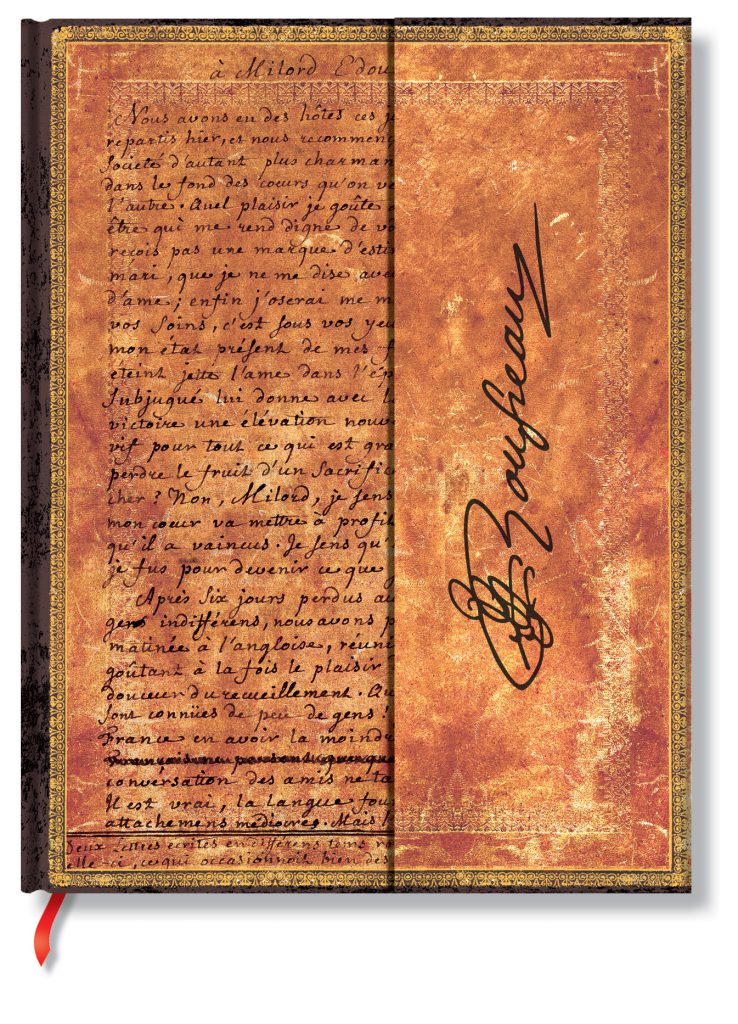 à Milord Edou
Nous avons eu des hôtes ces j
repartis hier, et nous recommenç
Société d'autant plus charman
dans le fond des cœurs qu'on ve
l'autre. Quel plaisir je goûte
être qui me rend digne de vo
reçois pas une marque d'esti
mari, que je ne me dise avec
d'ame; enfin j'oserai me m
vos soins, c'est sous vos yeu
mon état présent de mes f
éteint jette l'ame dans l'ép
Subjugué lui donne avec l
victoire une élévation nouv
vif pour tout ce qui est gra
perdre le fruit d'un Sacrific
cher? Non, Milord, je sens
mon cœur va mettre à profit
qu'il a vaincus. Je sens qu'
je fus pour devenir ce que j
Après Six jours perdus au
gens indifférens, nous avons p
matinée à l'angloise, réuni
goûtant à la fois le plaisir
douceur du recueillement. Qu
Sont connües de peu de gens!
France en avoir la moindr
conversation des amis ne ta
Il est vrai, la langue fou
attachemens médiocres. Mais l
Deux Lettres écrites en différens tems ro
elle-ci, ce qui occasionnoit bien des
JJRousseau